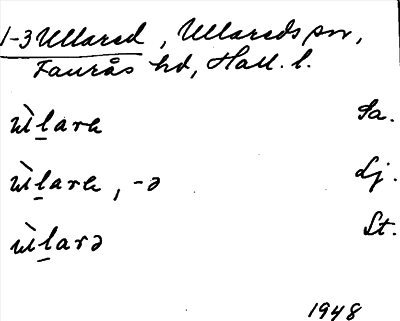 1-3 Ullared, Ullareds sn,
Faurås hd, Hall. l.
ùlara Sa.
ùlara, -ə Lj.
ùlarə St.
1948